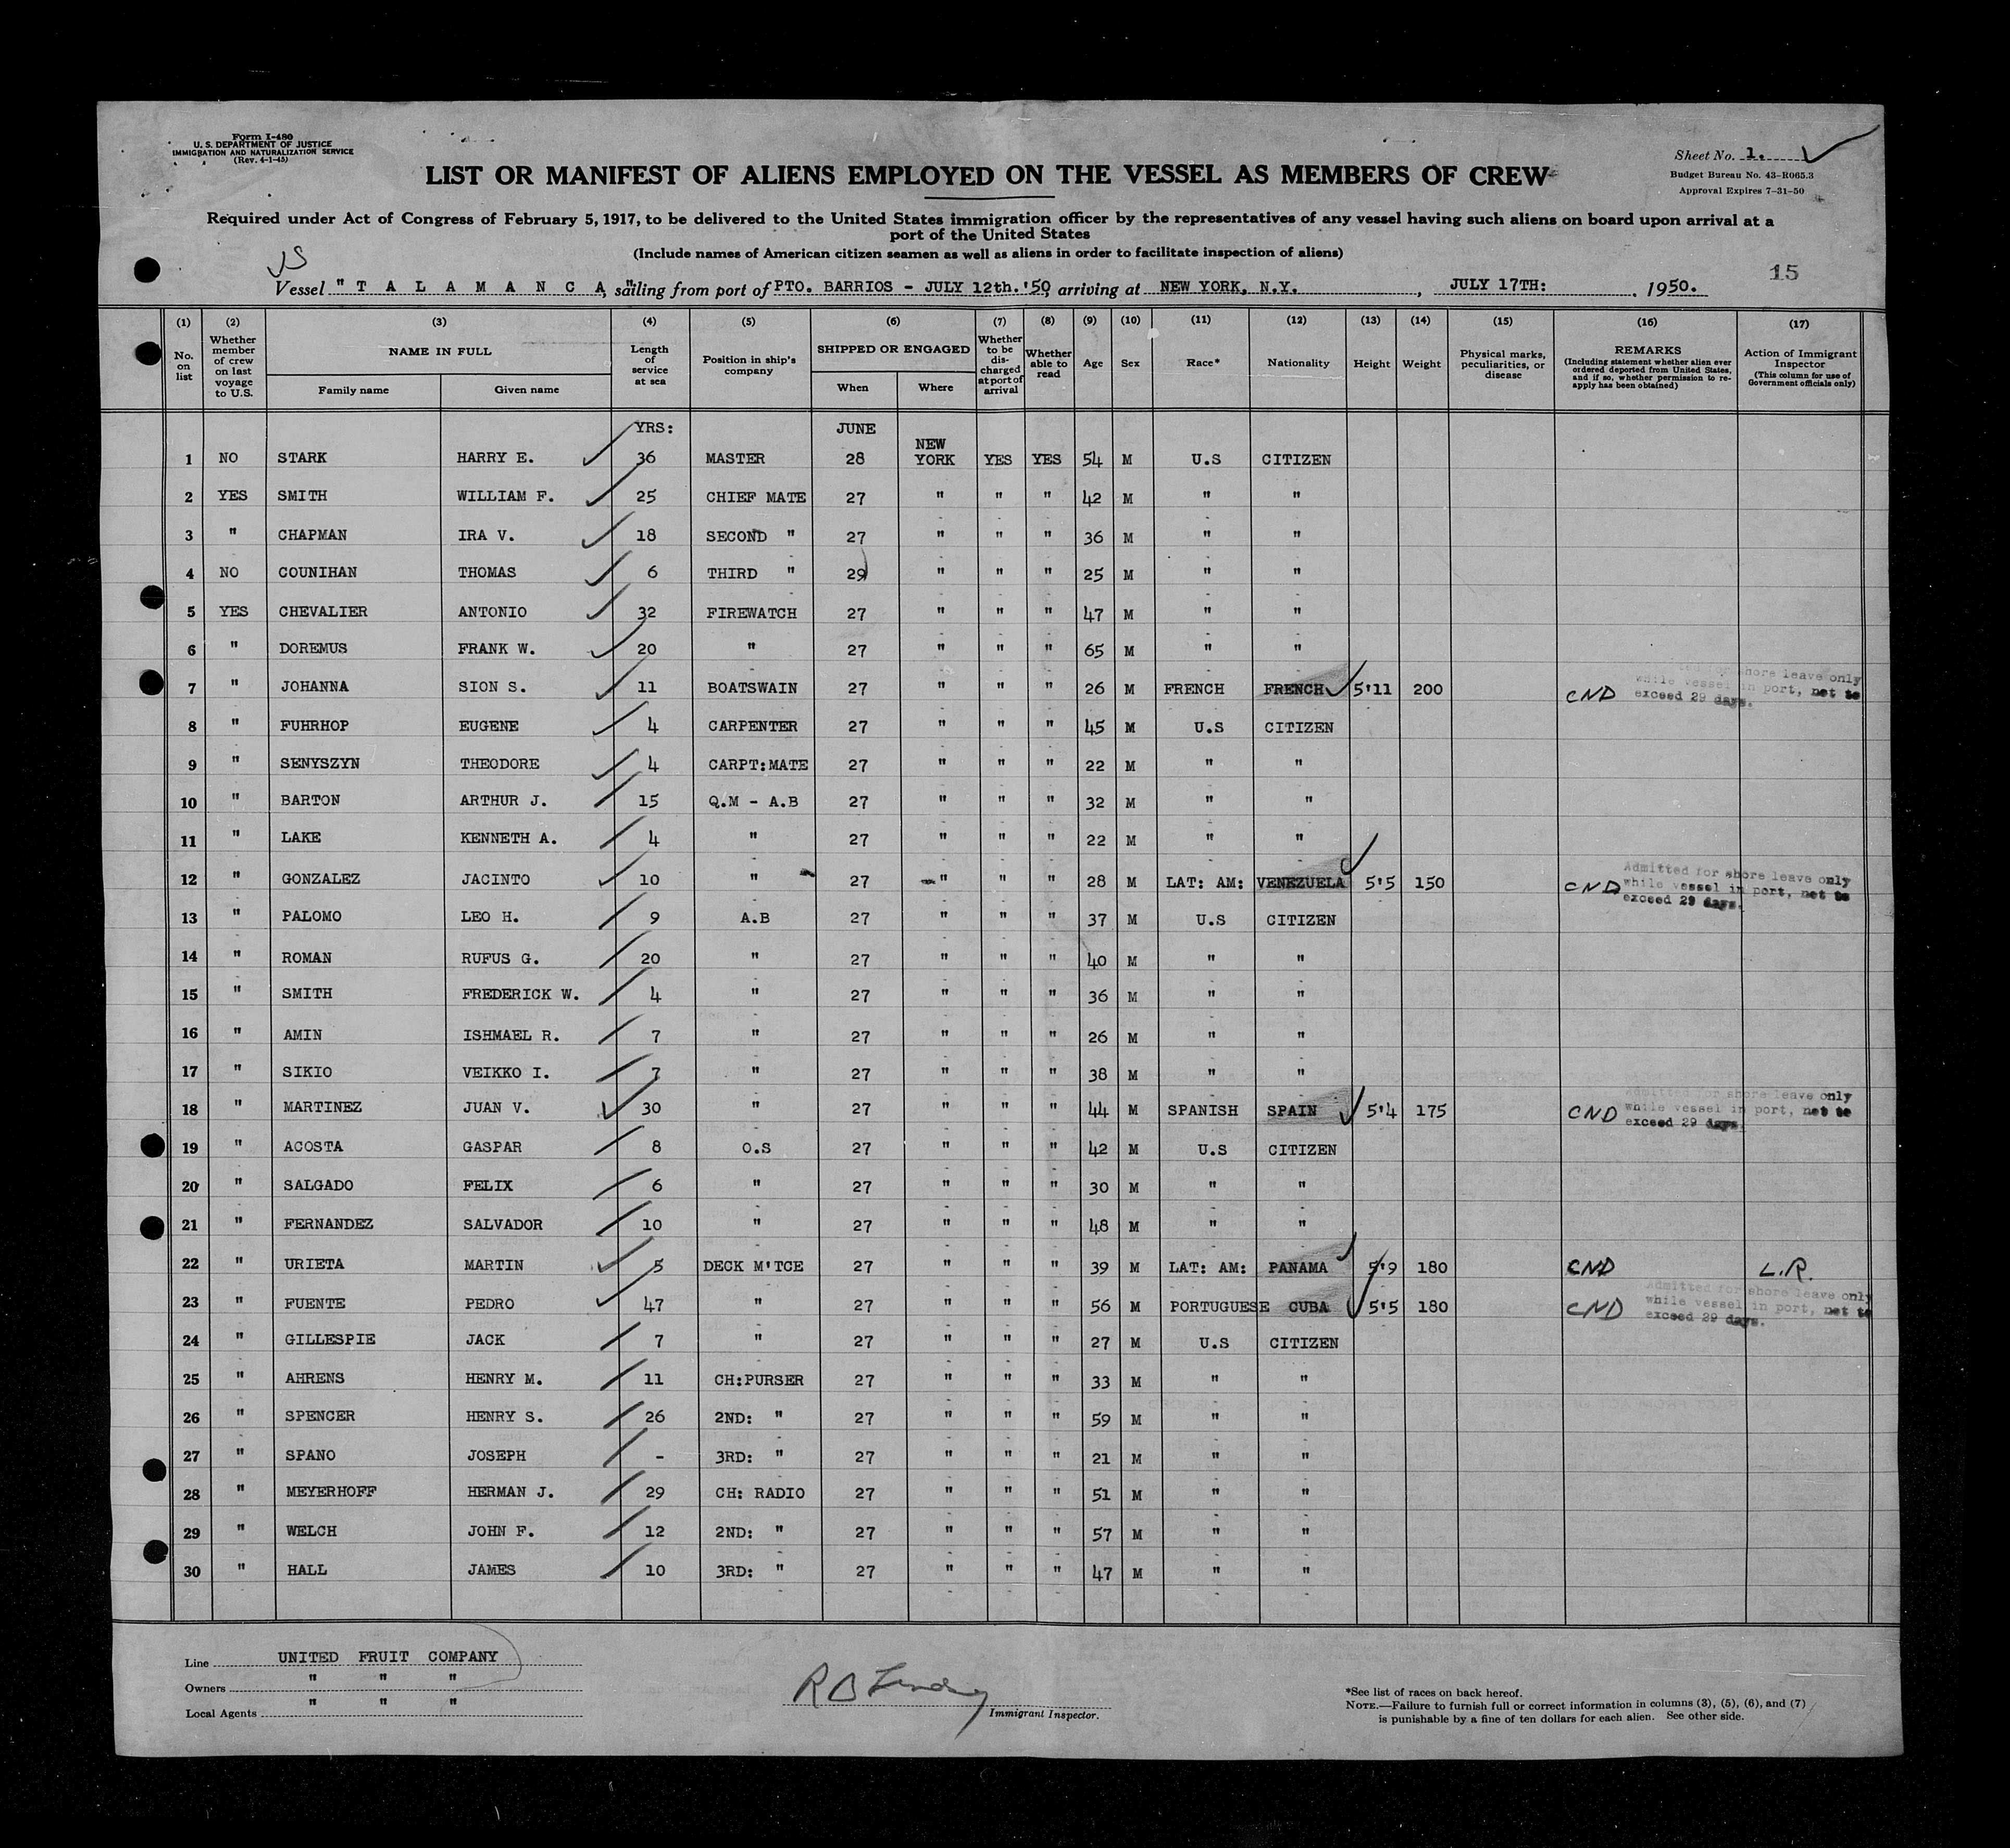 Form I-480
U. S. DEPARTMENT OF JUSTICE
IMMIGRATION AND NATURALIZATION SERVICE
(Rev. 4-1-45)
Sheet No. 1.
Budget Bureau No. 43-R065.3
Approval Expires 7-31-50
LIST OR MANIFEST OF ALIENS EMPLOYED ON THE VESSEL AS MEMBERS OF CREW
Required under Act of Congress of February 5, 1917, to be delivered to the United States immigration officer by the representatives of any vessel having such aliens on board upon arrival at a
port of the United States
(Include names of American citizen seamen as well as aliens in order to facilitate inspection of aliens)
15
Vessel "T A L A M A N C A," sailing from port of PTO. BARRIOS - JULY 12th.'50, arriving at NEW YORK, N.Y., JULY 17TH:, 1950.
(1) (2) (3) (4) (5) (6) (7) (8) (9) (10) (11) (12) (13) (14) (15) (16) (17)
No. on list
Whether member of crew on last voyage to U.S.
NAME IN FULL
Family name
Given name
Length of service at sea
Position in ship's company
SHIPPED OR ENGAGED
When
Where
Whether to be discharged at port of arrival
Whether able to read
Age
Sex
Race*
Nationality
Height
Weight
Physical marks, peculiarities, or disease
REMARKS
(Including statement whether alien ever ordered deported from United States, and if so, whether permission to reapply has been obtained)
Action of Immigrant Inspector
(This column for use of Government officials only)
YRS: JUNE
1 NO STARK HARRY E. 36 MASTER 28 NEW YORK YES YES 54 M U.S CITIZEN
2 YES SMITH WILLIAM F. 25 CHIEF MATE 27 " " " 42 M " "
3 " CHAPMAN IRA V. 18 SECOND " 27 " " " 36 M " "
4 NO COUNIHAN THOMAS 6 THIRD " 29 " " " 25 M " "
5 YES CHEVALIER ANTONIO 32 FIREWATCH 27 " " " 47 M " "
6 " DOREMUS FRANK W. 20 " 27 " " " 65 M " "
7 " JOHANNA SION S. 11 BOATSWAIN 27 " " " 26 M FRENCH FRENCH 5'11 200 CND shore leave only while vessel in port, not to exceed 29 days.
8 " FUHRHOP EUGENE 4 CARPENTER 27 " " " 45 M U.S CITIZEN
9 " SENYSZYN THEODORE 4 CARPT:MATE 27 " " " 22 M " "
10 " BARTON ARTHUR J. 15 Q.M - A.B 27 " " " 32 M " "
11 " LAKE KENNETH A. 4 " 27 " " " 22 M " "
12 " GONZALEZ JACINTO 10 " 27 " " " 28 M LAT: AM: VENEZUELA 5'5 150 CND Admitted for shore leave only while vessel in port, not to exceed 29 days.
13 " PALOMO LEO H. 9 A.B 27 " " " 37 M U.S CITIZEN
14 " ROMAN RUFUS G. 20 " 27 " " " 40 M " "
15 " SMITH FREDERICK W. 4 " 27 " " " 36 M " "
16 " AMIN ISHMAEL R. 7 " 27 " " " 26 M " "
17 " SIKIO VEIKKO I. 7 " 27 " " " 38 M " "
18 " MARTINEZ JUAN V. 30 " 27 " " " 44 M SPANISH SPAIN 5'4 175 CND Admitted for shore leave only while vessel in port, not to exceed 29 days.
19 " ACOSTA GASPAR 8 O.S 27 " " " 42 M U.S CITIZEN
20 " SALGADO FELIX 6 " 27 " " " 30 M " "
21 " FERNANDEZ SALVADOR 10 " 27 " " " 48 M " "
22 " URIETA MARTIN 5 DECK M'TCE 27 " " " 39 M LAT: AM: PANAMA 5'9 180 CND L.R.
23 " FUENTE PEDRO 47 " 27 " " " 56 M PORTUGUESE CUBA 5'5 180 CND Admitted for shore leave only while vessel in port, not to exceed 29 days.
24 " GILLESPIE JACK 7 " 27 " " " 27 M U.S CITIZEN
25 " AHRENS HENRY M. 11 CH:PURSER 27 " " " 33 M " "
26 " SPENCER HENRY S. 26 2ND: " 27 " " " 59 M " "
27 " SPANO JOSEPH - 3RD: " 27 " " " 21 M " "
28 " MEYERHOFF HERMAN J. 29 CH: RADIO 27 " " " 51 M " "
29 " WELCH JOHN F. 12 2ND: " 27 " " " 57 M " "
30 " HALL JAMES 10 3RD: " 27 " " " 47 M " "
Line UNITED FRUIT COMPANY
Owners " " "
Local Agents " " "
Immigrant Inspector.
*See list of races on back hereof.
NOTE.—Failure to furnish full or correct information in columns (3), (5), (6), and (7)
is punishable by a fine of ten dollars for each alien. See other side.